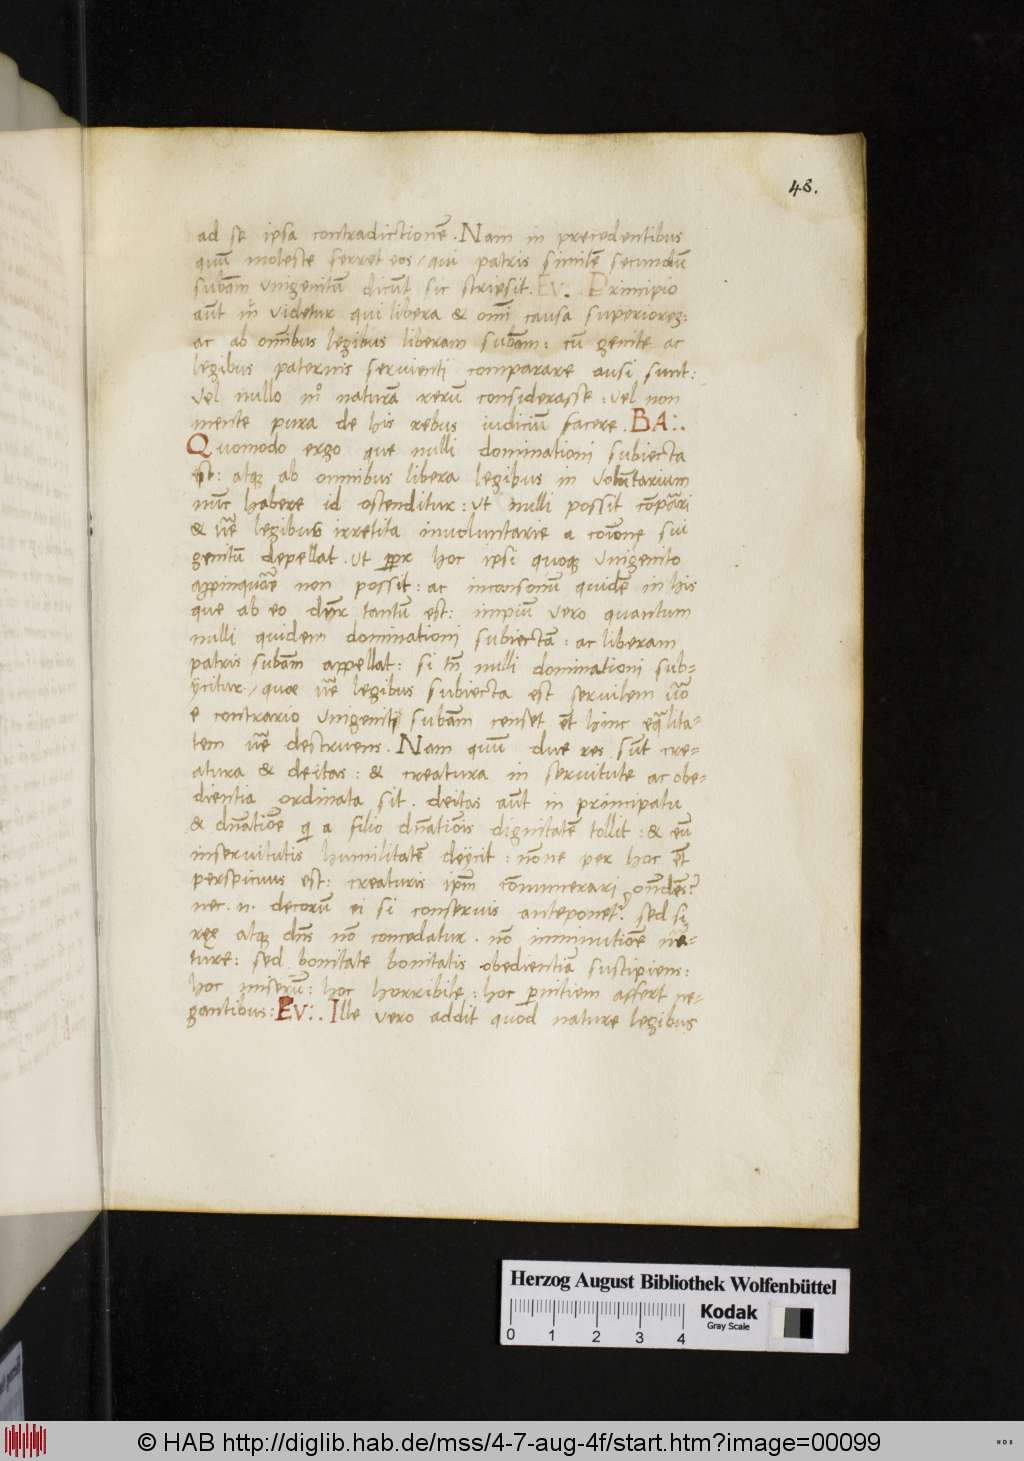 48.
ad se ipsa contradictionē. Nam in precedentibus
quū moleste ferret eos, qui patris similē secundū
subāam unigenitū dicūt sic stripsit. EV:. Principio
aūt videtur qui libera & omī causa superiores:
ac ab omībus legibus liberam subāam: cū genite ac
legibus paternis servienti comparare ausi sunt:
vel nullo mō naturā rerū considerasse: vel non
mente pura de his rebus iudiciū facere. BA:.
Quomodo ergo que nulli dominationi subiecta
est: atq; ab omnibus libera legibus in volūtarium
nūc habere id ostenditur: ut nulli possit
& legibus irretita involuntarie a sui
genitū depellat. ut hoc ipsi quoq; unigenito
non possit: ac inconsonū quidē in his
que ab eo tantū est: impiū vero quantum
nulli quidem dominationi subiectā: ac liberam
patris subāam appellat: si tn̄ nulli dominationi sub=
ÿcitur, quae legibus subiecta est servilem
e contrario unigeniti subāam censet et̄ hinc eqālita=
tem destruens. Nam quū due res sūt cre=
atura & deitas: & creatura in servitute ac obe=
dientia ordinata sit. deitas aūt in principatu
& dn̄atiōe qi a filio dn̄atiōis dignitatē tollit: & eū
inservitutis humilitatē deÿcit: nōne per hoc et̄
perspicuus est: creaturis ipm̄ cōnumerari ondēs?
nec. n. decorū ei si conservis anteponet. sed si
rex atq; dn̄s nō concedatur. nō imminutiōe na=
ture: sed bonitate bonitatis obedientiā suscipiens:
hoc miserū: hoc horribile: hoc pernitiem affert ne=
gantibus: EV:. Ille vero addit quod nature legibus
Herzog August Bibliothek Wolfenbüttel
0 1 2 3 4
Kodak
Gray Scale
© HAB http://diglib.hab.de/mss/4-7-aug-4f/start.htm?image=00099